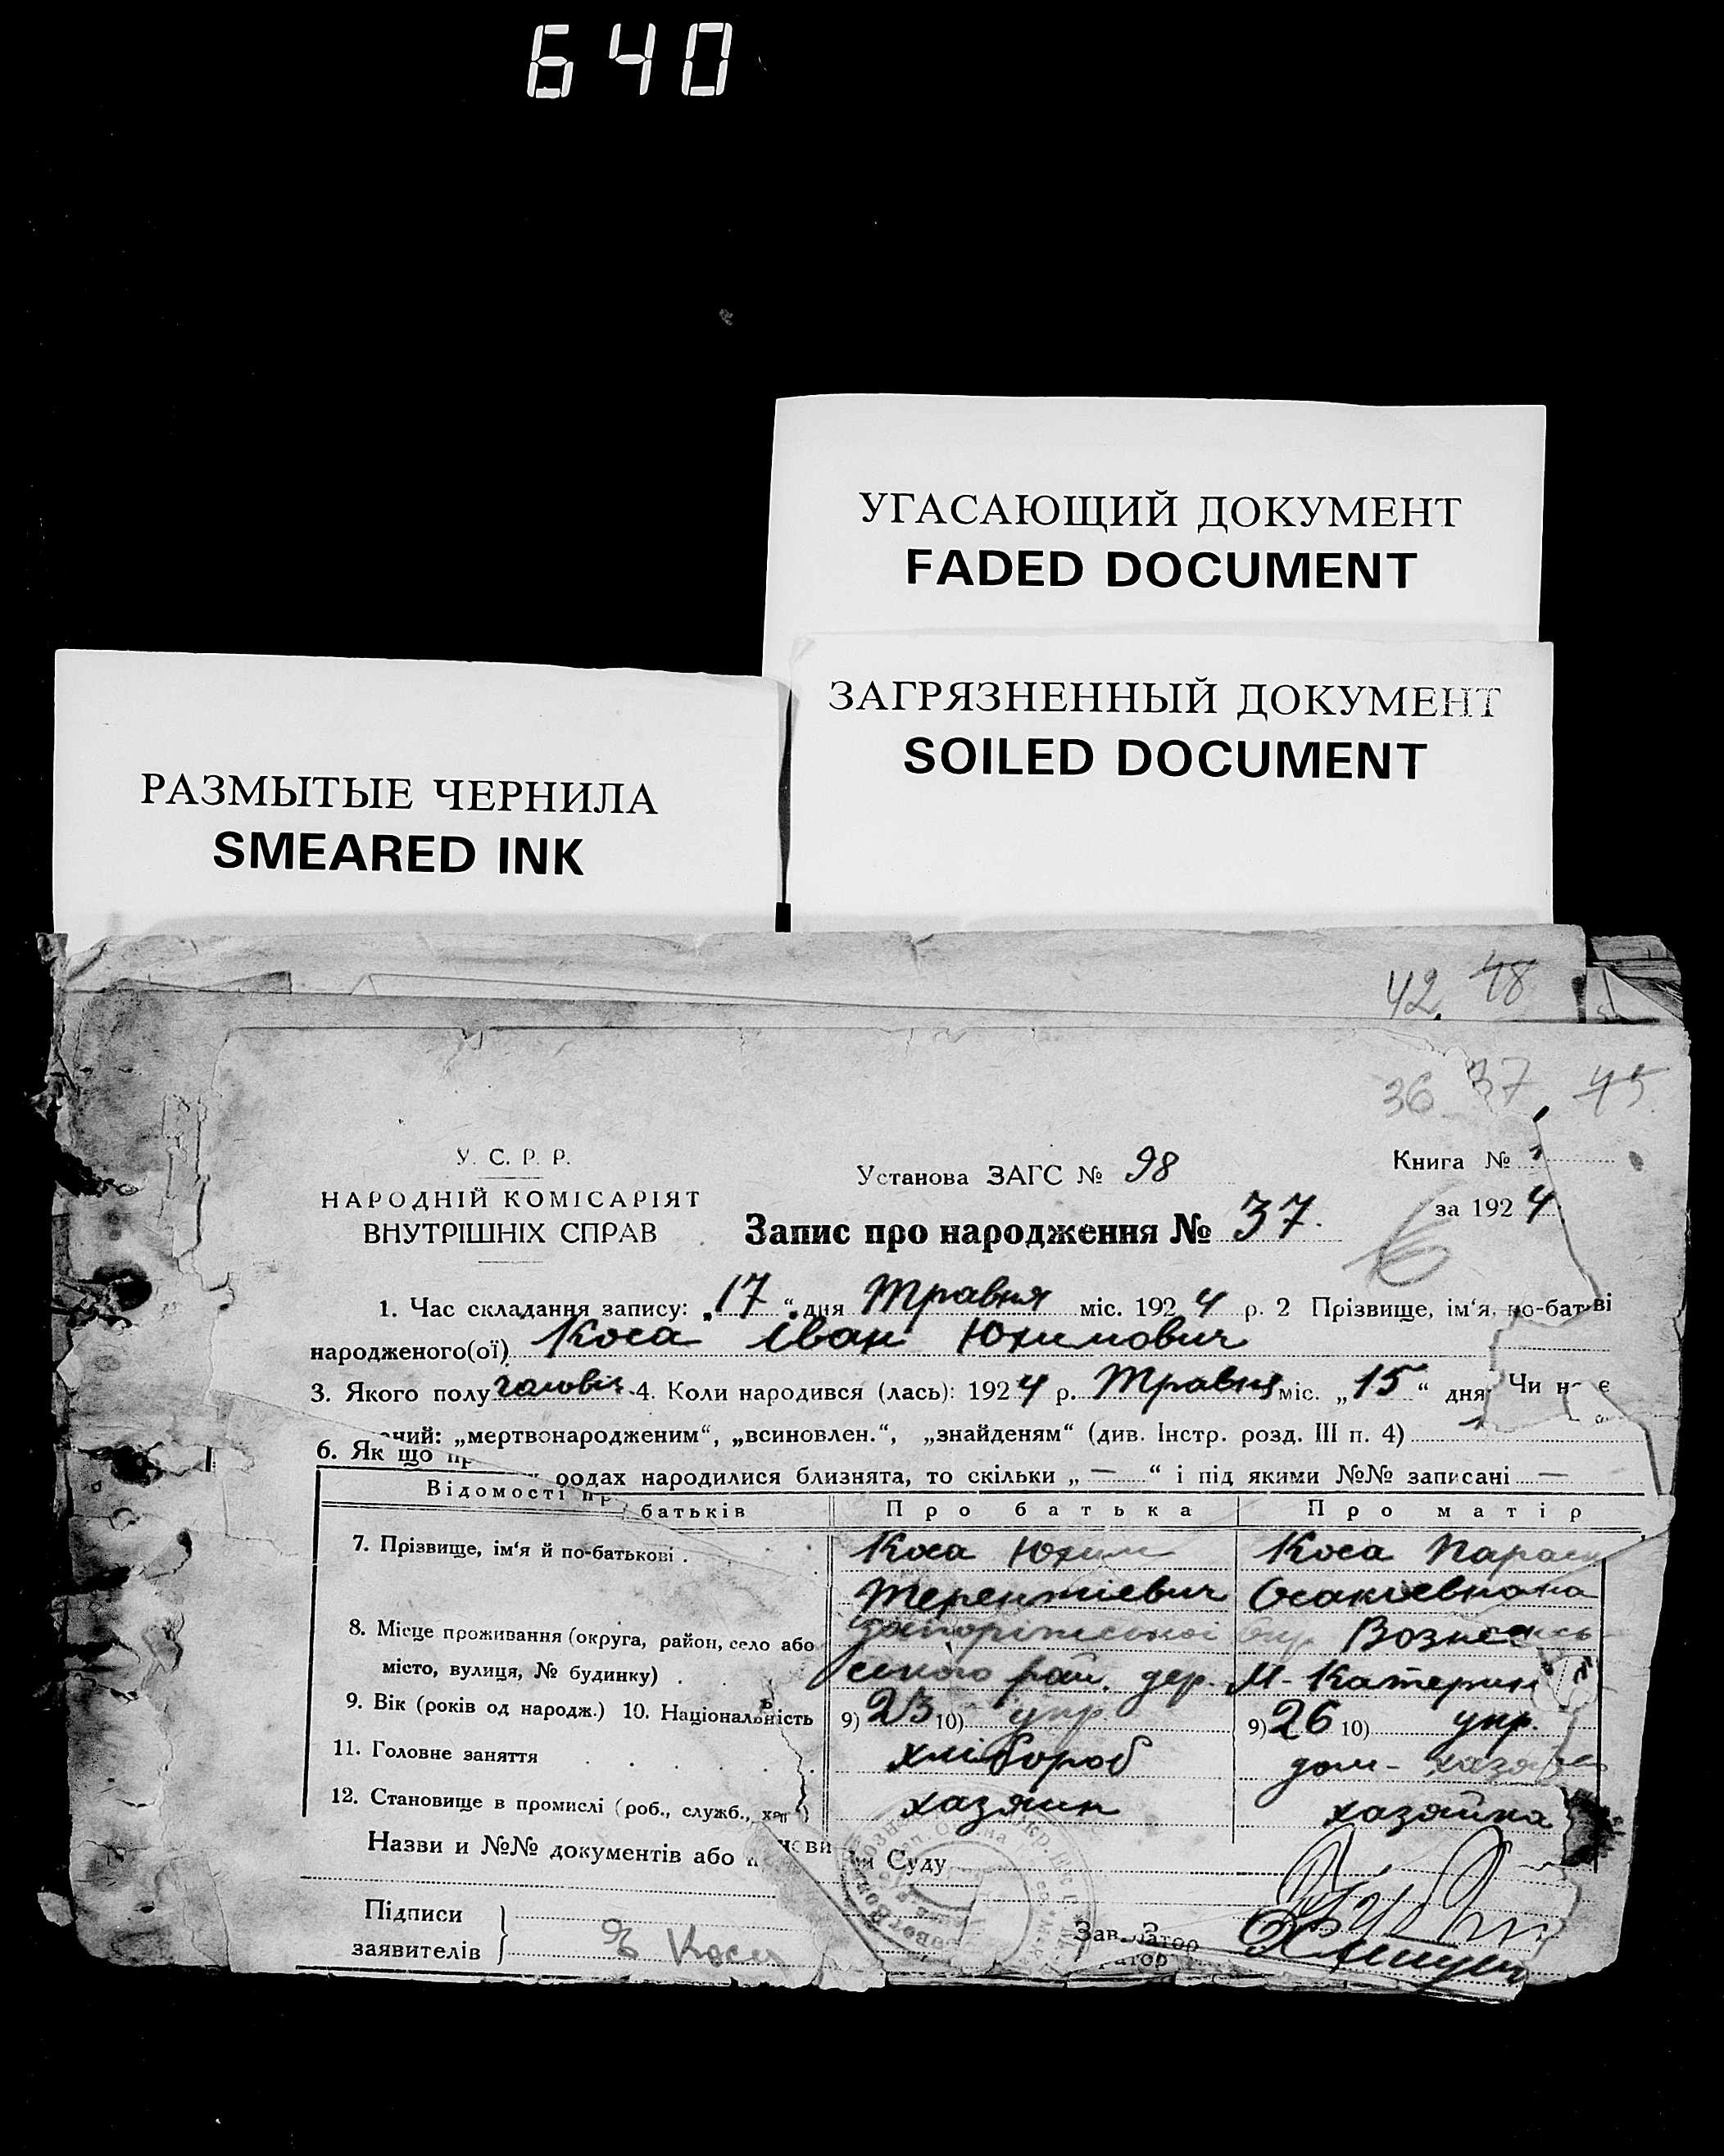 640
УГАСАЮЩИЙ ДОКУМЕНТ
FADED DOCUMENT
ЗАГРЯЗНЕННЫЙ ДОКУМЕНТ
SOILED DOCUMENT
РАЗМЫТЫЕ ЧЕРНИЛА
SMEARED INK
42. 48
36 37 45
У. С. Р. Р.
НАРОДНІЙ КОМІСАРІЯТ
ВНУТРІШНІХ СПРАВ
Установа ЗАГС № 98
Запис про народження № 37.
Книга № 1
за 1924
1. Час складання запису: „17“ дня Травня міс. 1924 р. 2 Прізвище, ім‘я, по-батьві
народженого(ої) Коса Іван Юхимович
3. Якого полу чоловіч. 4. Коли народився (лась): 1924 р. Травня міс. „15“ дня Чи не є
ний: „мертвонародженим“, „всиновлен.“, „знайденям“ (див. Інстр. розд. III п. 4)
6. Як що пр родах народилися близнята, то скільки „—“ і під якими №№ записані —
Відомості пр батьків Про батька Про матір
7. Прізвище, ім‘я й по-батькові . Коса Юхим Коса Параск
Терентіевич
8. Місце проживання (округа, район, село або Запоріжської окр. Вознесенсь
місто, вулиця, № будинку) . ського рай. дер. М-Катерин
9. Вік (років од народж.) 10. Національність 9) 23 10) укр. 9) 26 10) укр.
11. Головне заняття хлібороб дом-
12. Становище в промислі (роб., служб., хаз.) хазяин хазяйка
Назви и №№ документів або п нови ви Суду
Підписи
заявителів Коса
Зав.